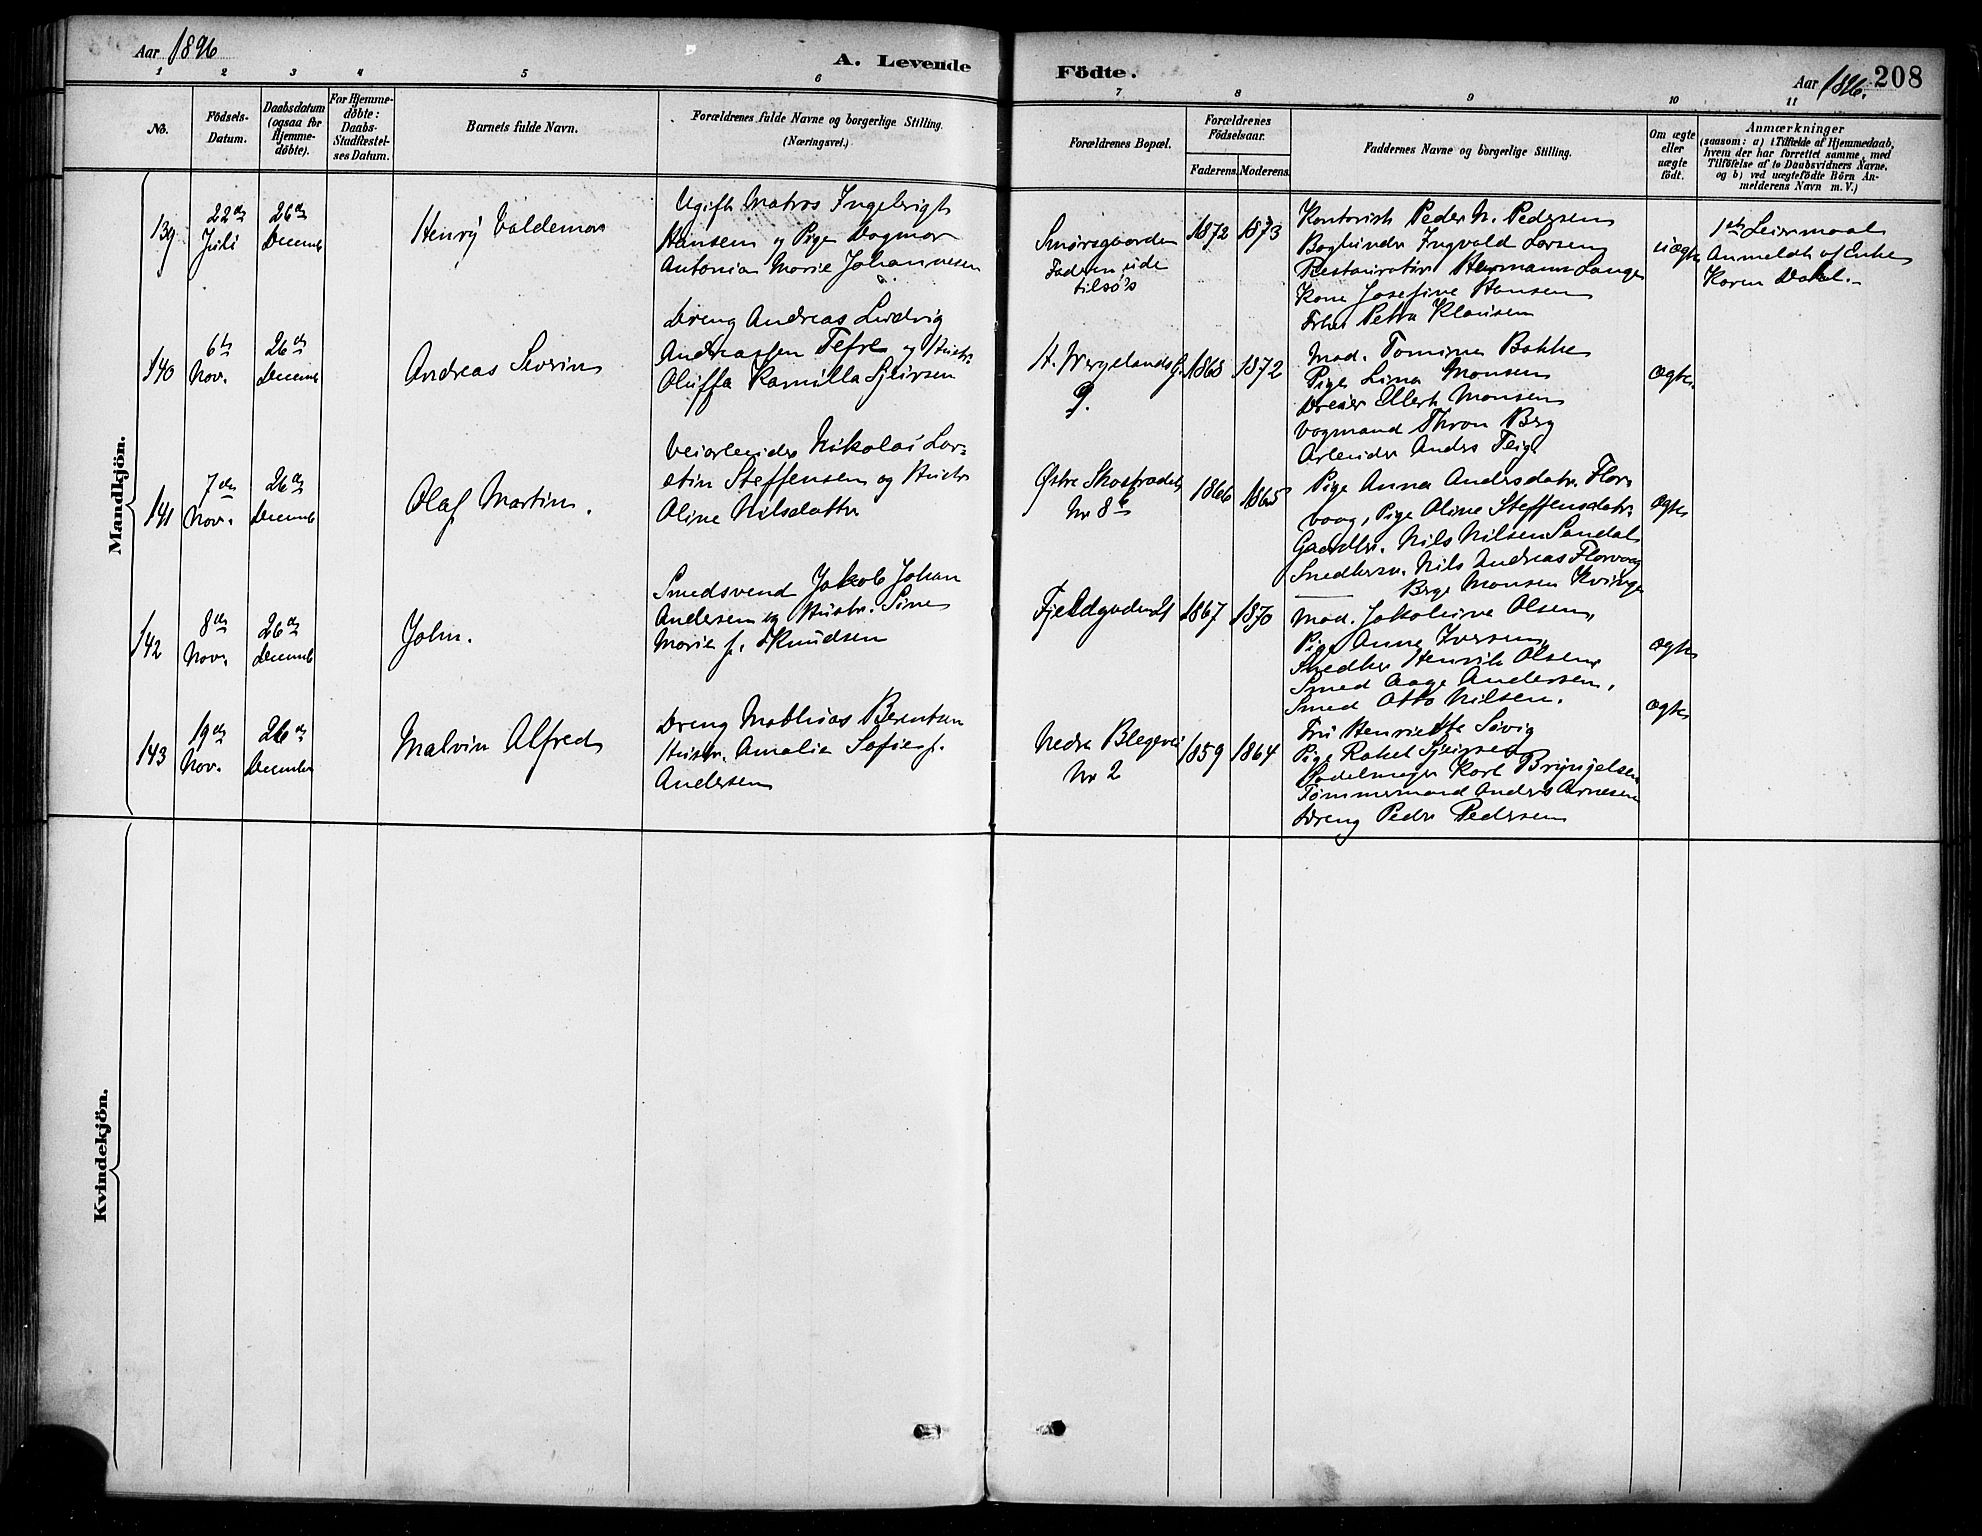 Aar 1896
A. Levende
Fødte.
Aar 1896.
208
1 2 3 4 5 6 7 8 9 10 11
No.
Fødsels-
Datum.
Daabsdatum
(ogsaa for
Hjemme-
døbte).
For Hjemme-
døbte:
Daabs-
Stadfæstel-
ses Datum.
Barnets fulde Navn.
Forældrenes fulde Navne og borgerlige Stilling.
(Næringsvei.)
Forældrenes Bopæl.
Forældrenes
Fødselsaar.
Faderens. Moderens.
Faddernes Navne og borgerlige Stilling.
Om ægte
eller
uægte
født.
Anmærkninger
(saasom: a) i Tilfælde af Hjemmedaab,
hvem der har forrettet samme, med
Tilføielse af to Daabsvidners Navne,
og b) ved uægtefødte Børn An-
melderens Navn m. V.)
Mandkjön.
139
22de
Juli
26de
Decemb
Henry Valdemar
Ugift Matros Ingebrigt
Hansen og Pige Dagmar
Antonia Marie Johannesen
Smørsgaarden
Faderen ude
tilsøs
1872 1873
Kontorist Peder N. Pedersen
Bogbinder Ingvald Larsen
Restauratør Hermann Lange
Kone Josefine Hansen
Petra Klausen
uægte
1ste Leiermaal
Anmeldt af Enke
Karen Dahl.
140
6te
Nov.
26de
Decemb
Andreas Severin
Dreng Andreas Ludvig
Andreassen Tefre og Hustr.
Oluffa Kamilla Sjeirsen
H. Wergelands G.
9.
1868 1872
Mad. Tomine Bakke
Pige Lina Monsen
Dreier Ellert Monsen
Vogmand Thron Berg
Arbeider Anders Teige
ægte
141
7de
Nov.
26de
Decemb
Olaf Martin.
Veiarbeider Nikolai Lar-
Steffensen og Hustr.
Oline Nilsdatter
Østre Skostrædet
Nr 8b
1866 1865
Pige Anna Andersdatr. Flor-
vaag, Pige Oline Steffensdatr.
Gaardbr. Nils Nilsen Sandal
Snedkersv. Nils Andreas Florvaag
Berge Monsen Kvinge
ægte
142
8de
Nov.
26de
Decemb
John.
Smedsvend Jakob Johan
Andersen og Hustr. Sine
Marie f. Knudsen
Fjeldgaden 21
1867 1870
Mad. Jakobine Olsen,
Pige Anna Iversen,
Snedker Henrik Olsen
Smed Aage Andersen,
Smed Otto Nilsen.
ægte
143
19de
Nov.
26de
December
Malvin Alfred
Dreng Mathias Berentsen
Hustr. Amalia Sofie f.
Andersen
Nedre Blegevei
Nr 2
1859 1864
Fru Henriette Søvig
Pige Rakel Sjeirsen
Karl Brynjelsen
Tømmermand Anders Arnesen
Dreng Peder Pedersen
ægte
Kvindekjön.